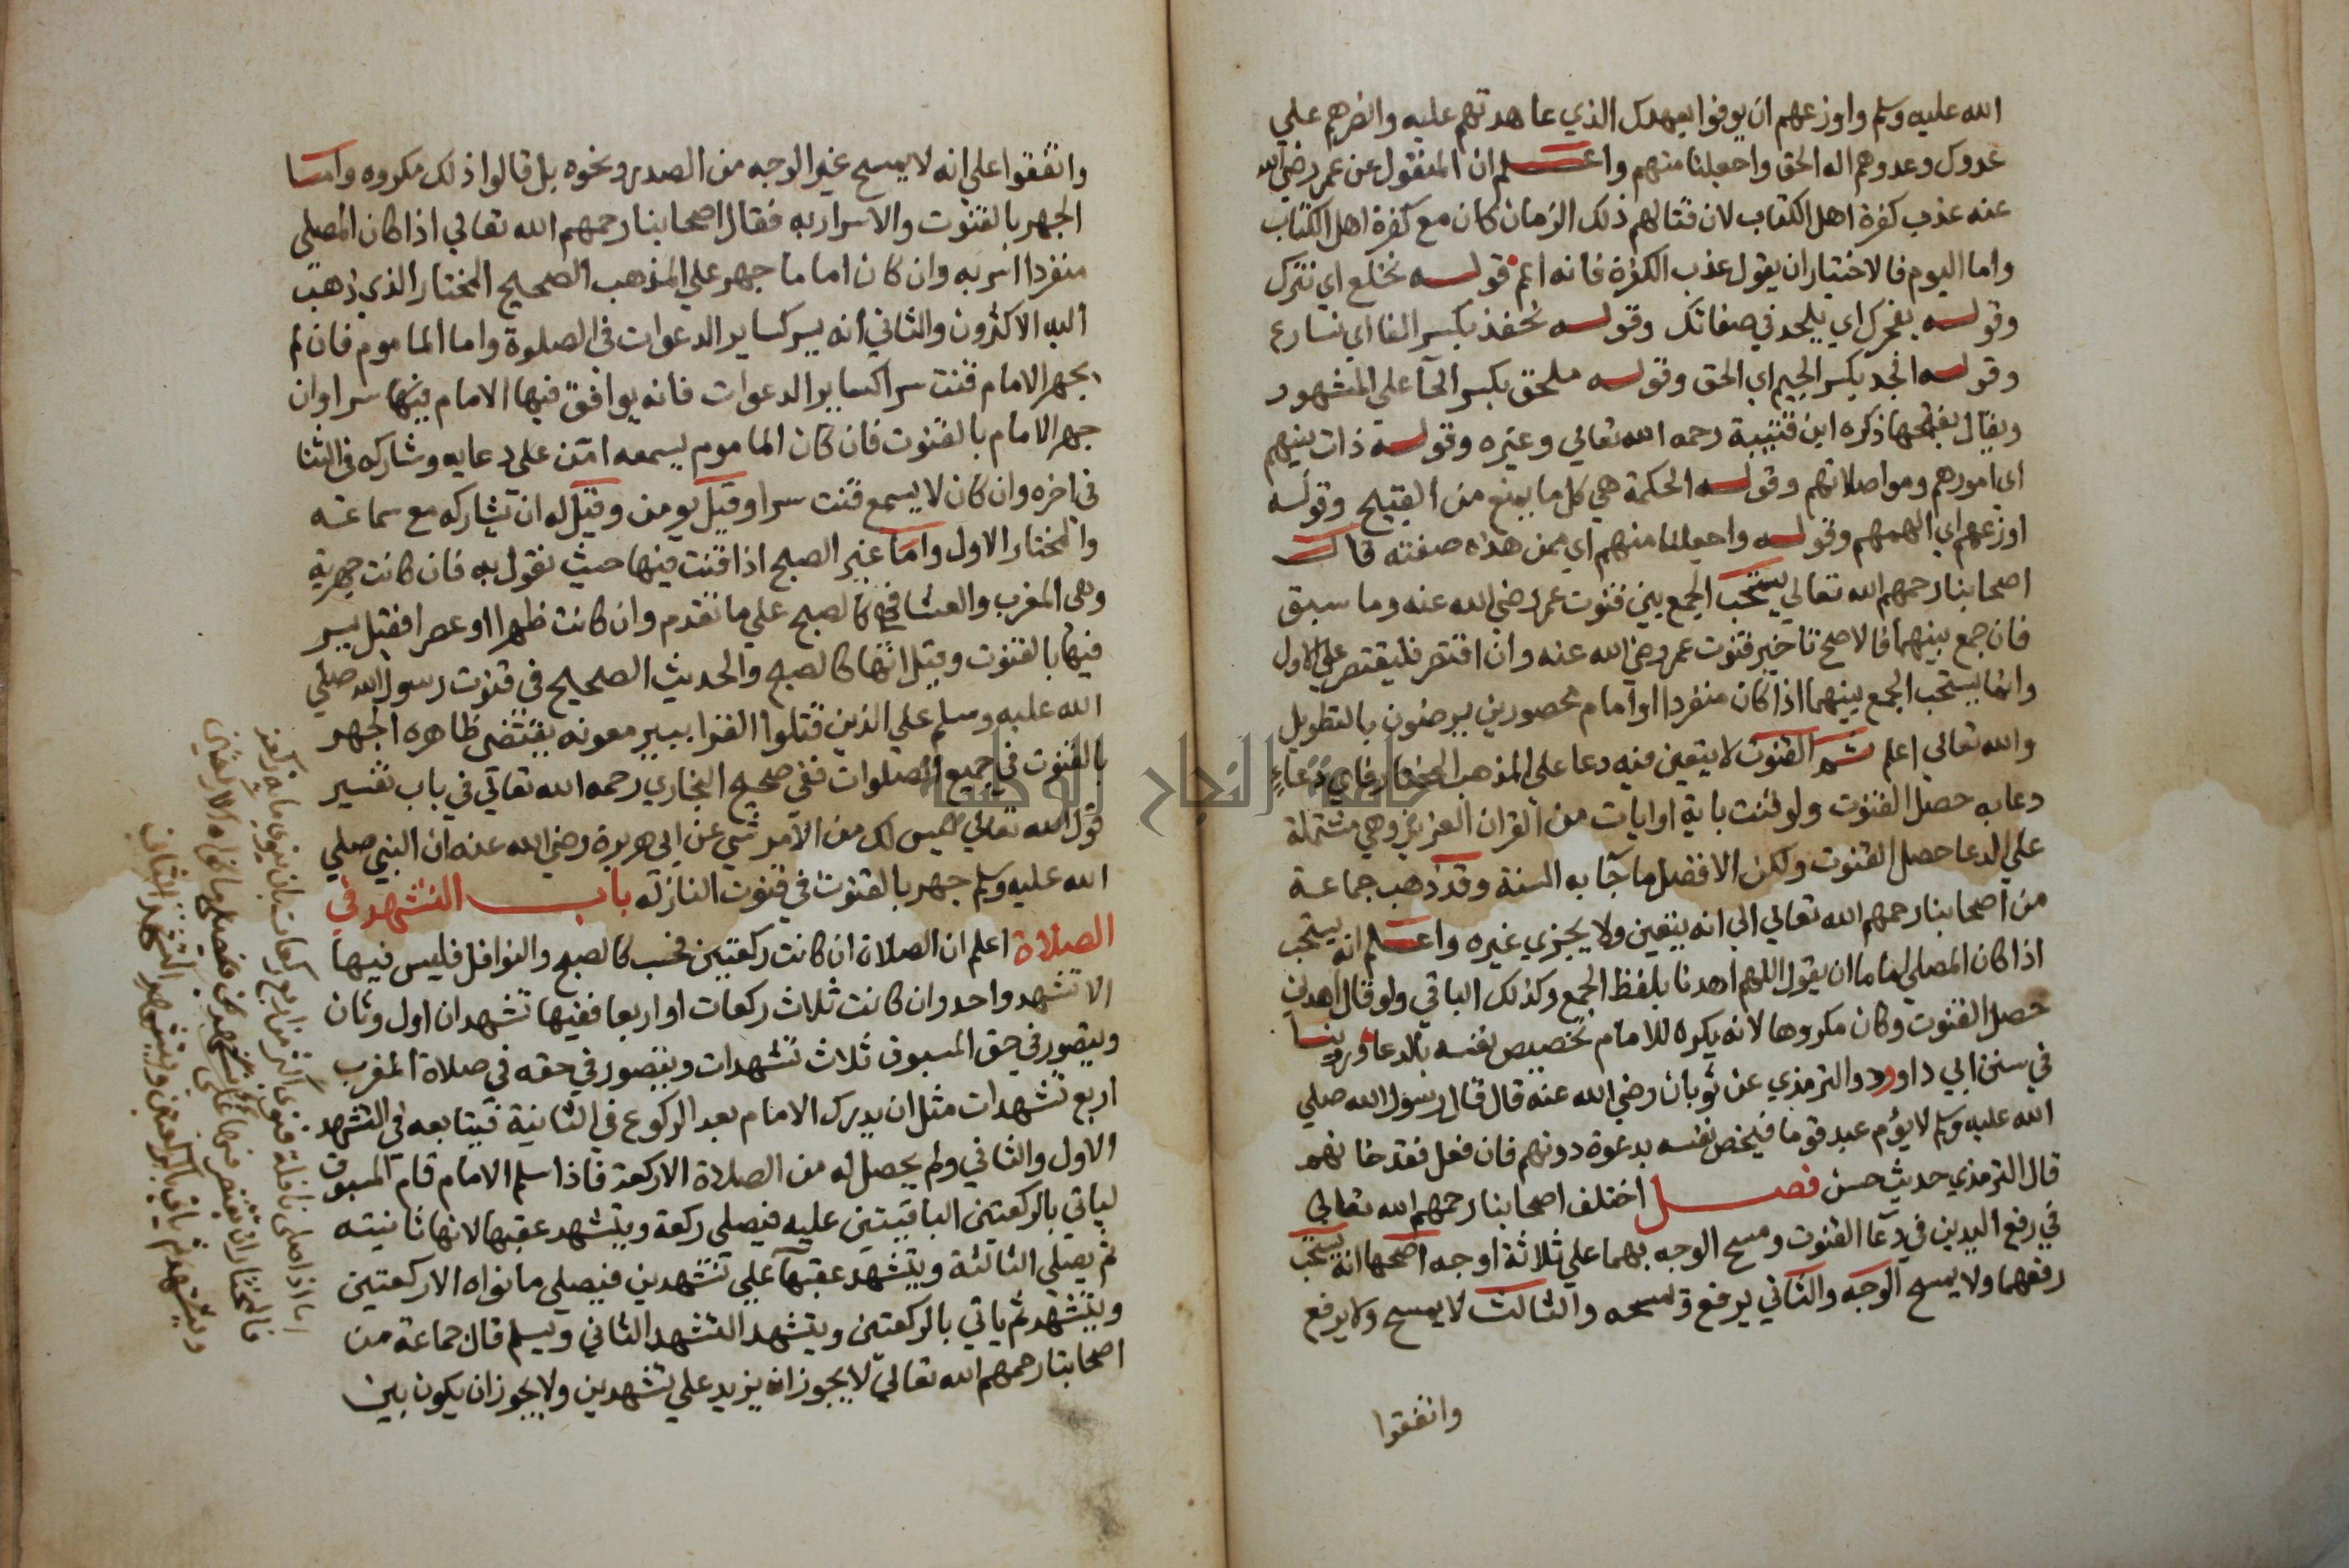 الله عليه وسلم واوزعهم ان يوفوا بعهدك الذي عاهدتهم عليه وانصرهم علي
عدوك وعدوهم اله الحق واجعلنا منهم واعلم ان المنقول عن عمر رضي الله
عنه عذب كفرة اهل الكتاب لان قتالهم ذلك الزمان كان مع كفرة اهل الكتاب
واما اليوم فالاختيار ان يقول عذب الكفرة فانه اعم قوله نخلع اي نترك
وقوله يفجرك اي يلحد في صفاتك وقوله نحفد بكسر الفا اي نسارع
وقوله الجد بكسر الجيم اي الحق وقوله ملحق بكسر الحآ علي المشهور
ويقال بفتحها ذكره ابن قتيبة رحمه الله تعالي وغيره وقوله ذات بينهم
اي امورهم ومواصلاتهم وقوله الحكمة هي كل ما يمنع من القبيح وقوله
اوزعهم اي الهمهم وقوله واجعلنا منهم اي ممن هذه صفته قال
اصحابنا رحمهم الله تعالي يستحب الجمع بين قنوت عمر رضي الله عنه وما سبق
فان جمع بينهما فالاصح تاخير قنوت عمر رضي الله عنه وان اقتصر فليقتصر علي الاول
وانما يستحب الجمع بينهما اذا كان منفردا او امام محصورين يرضون بالتطويل
والله تعالي اعلم ثم القنوت لا يتعين فيه دعا علي المذهب المختار فاي دعاءٍ
دعا به حصل القنوت ولو قنت باية او ايات من القران العزيز وهي مشتملة
علي الدعا حصل القنوت ولكن الافضل ما جآ به السنة وقد ذهب جماعة
من اصحابنا رحمهم الله تعالي الي انه يتعين ولا يجزي غيره واعلم انه يستحب
اذا كان المصلي اماما ان يقول اللهم اهدنا بلفظ الجمع وكذلك الباقي ولو قال اهدني
حصل القنوت وكان مكروها لانه يكره للامام تخصيص نفسه بالدعا وروينا
في سنن ابي داورد والترمذي عن ثوبان رضي الله عنه قال قال رسول الله صلي
الله عليه وسلم لا يؤم عبد قوما فيخص نفسه بدعوة دونهم فان فعل فقد خانهم
قال الترمذي حديث حسن فصل اختلف اصحابنا رحمهم الله تعالي
في رفع اليدين في دعآ القنوت ومسح الوجه بهما علي ثلاثة اوجه اصحها انه يستحب
رفعهما ولا يمسح الوجه والثاني يرفع ويمسحه والثالث لا يمسح ولا يرفع
واتفقوا
واتفقوا علي انه لا يمسح غير الوجه من الصدر ونحوه بل قالوا ذلك مكروه واما
الجهر بالقنوت والاسرار به فقال اصحابنا رحمهم الله تعالي اذا كان المصلي
منفردا اسر به وان كان اماما جهر علي المذهب الصحيح المختار الذي ذهب
اليه الاكثرون والثاني انه يسر كساير الدعوات في الصلوة واما الماموم فان لم
يجهر الامام قنت سرا كساير الدعوات فانه يوافق فيها الامام فيها سرا وان
جهر الامام بالقنوت فان كان الماموم يسمعه امن علي دعايه وشاركه في الثنا
في اخره وان كان لا يسمع قنت سرا وقيل يومن وقيل له ان تشاركه مع سماعته
والمختار الاول واما غير الصبح اذا قنت فيها حيث نقول به فان كانت جهرية
وهي المغرب والعشا فهي كالصبح علي ما تقدم وان كانت ظهرا او عصرا فقيل يسر
فيها بالقنوت وقيل انها كالصبح والحديث الصحيح في قنوت رسول الله صلي
الله عليه وسلم علي الذين قتلوا القرا ببير معونه يقتضي ظاهره الجهر
بالقنوت في جميع الصلوات ففي صحيح البخاري رحمه الله تعالي في باب تفسير
قول الله تعالي ليس لك من الامر شي عن ابي هريرة رضي الله عنه ان النبي صلي
الله عليه وسلم جهر بالقنوت في قنوت النازلة باب التشهد في
الصلاة اعلم ان الصلاة ان كانت ركعتين فحسب كالصبح والنوافل فليس فيها
الا تشهد واحد وان كانت ثلاث ركعات او اربعا ففيها تشهدان اول وثان
ويتصور في حق المسبوق ثلاث تشهدات ويتصور في حقه في صلاة المغرب
اربع تشهدات مثل ان يدرك الامام بعد الركوع في الثانية فيتابعه في التشهد
الاول والثاني ولم يحصل له من الصلاة الا ركعة فاذا سلم الامام قام المسبوق
لياتي بالركعتين الباقيتين عليه فيصلي ركعة ويتشهد عقبها لانها ثانيته
ثم يصلي الثالثة ويتشهد عقبها علي تشهدين فيصلي ما نواه الا ركعتين
ويتشهد ثم ياتي بالركعتين ويتشهد التشهد الثاني ويسلم قال جماعة من
اصحابنا رحمهم الله تعالي لا يجوز ان يزيد علي تشهدين ولا يجوز ان يكون بين
اما اذا صلي نافلة فنوي اكثر من اربع ركعات بان نوي ماية ركعة
فالمختار ان يقتصر فيها علي تشهدين فيصلي ما نواه الا ركعتين
ويتشهد ثم ياتي بالركعتين ويتشهد التشهد الثاني
جامعة النجاح الوطنية